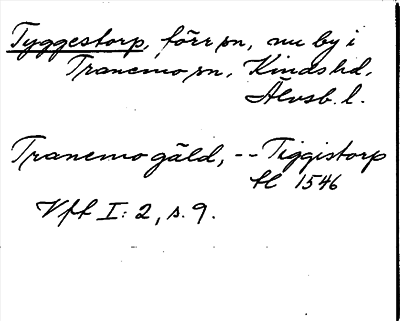 Tyggestorp, förr sn, nu by i
Tranemo sn, Kinds hd,
Älvsb. l.
Tranemo gäld, -- Tiggistorp
hl 1546
Vft I: 2, s. 9.